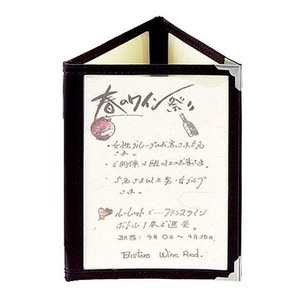 春のワイン祭り
・女性グループのお客さま5名
さま。
・ご同伴2組以上のお客さま
・5名さま以上男・女グループ
さま。
ルーレットで…フランスワイン
ボトル1本ご進呈。
期間:4月10日〜4月30日
Bistaro Wine Red.